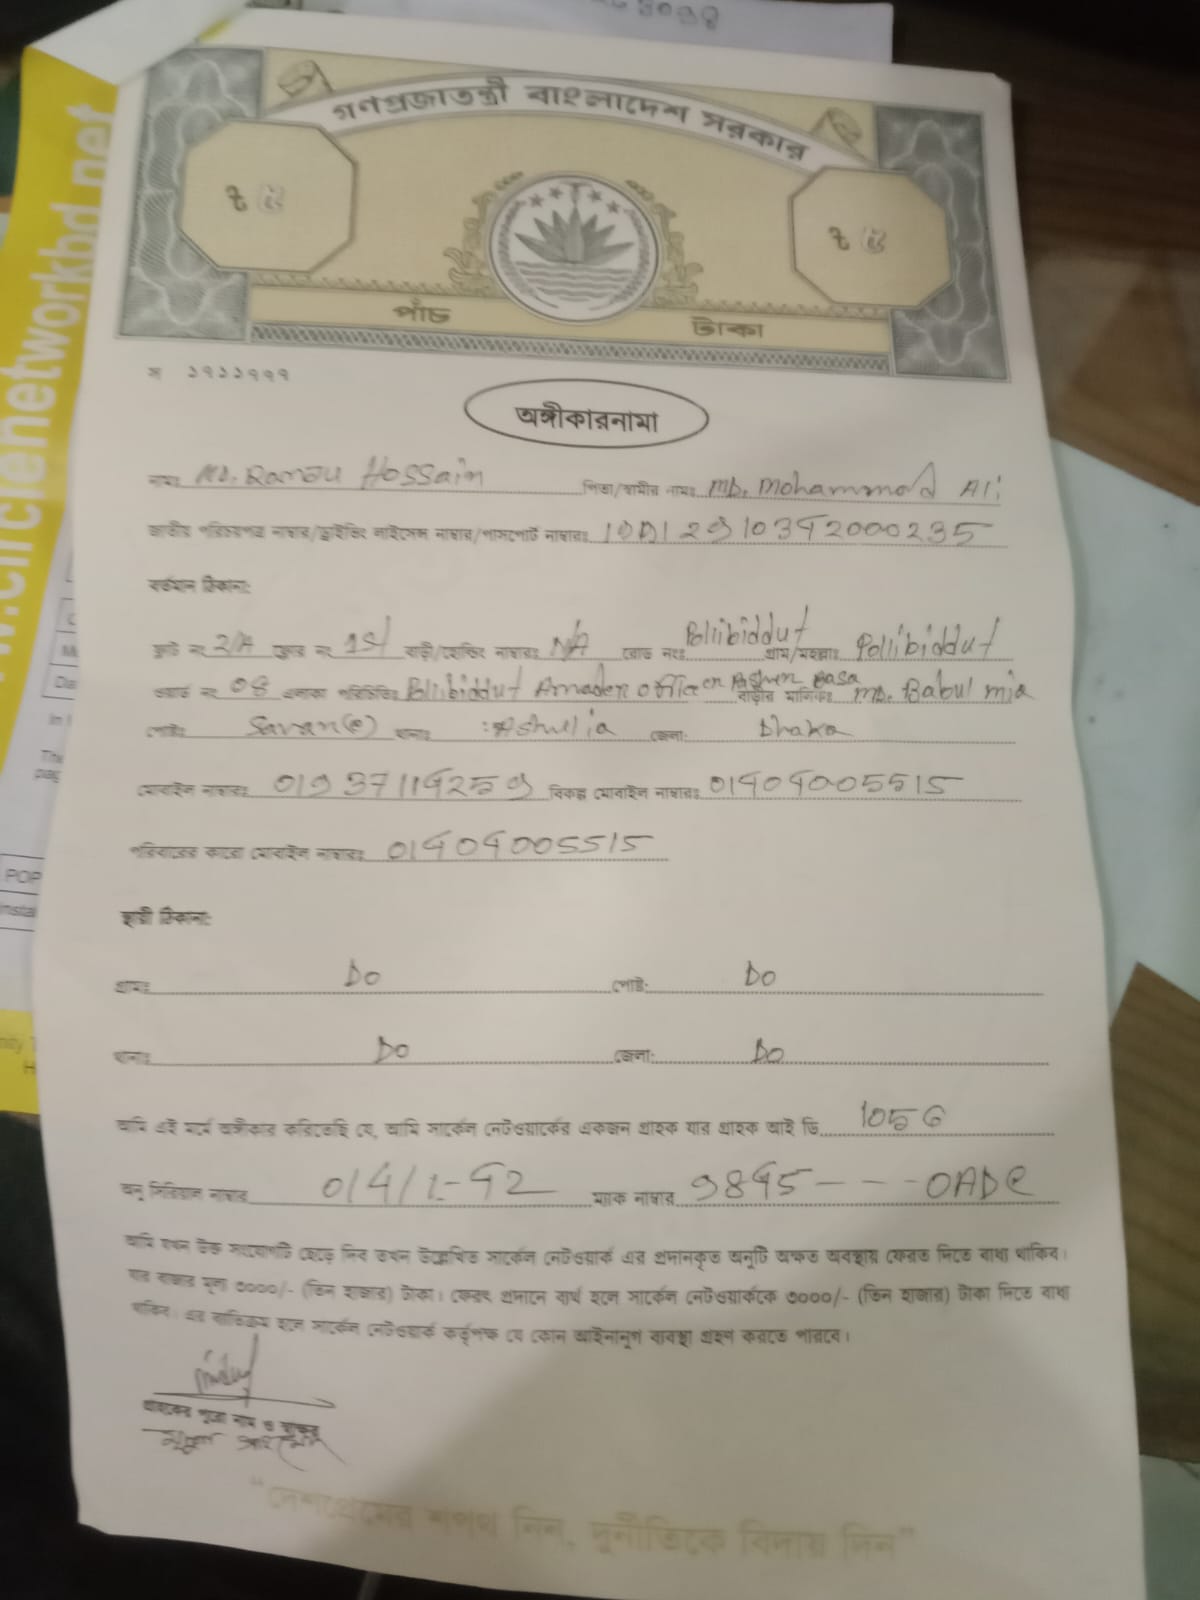 গণপ্রজাতন্ত্রী বাংলাদেশ সরকার
পাঁচ টাকা
অঙ্গীকারনামা
নামঃ MD. Hossain পিতা/স্বামীর নামঃ MD. Mohammad Ali
জাতীয় পরিচয়পত্র নাম্বার/ড্রাইভিং লাইসেন্স নাম্বার/পাসপোর্ট নাম্বারঃ
বর্তমান ঠিকানা:
ফ্লাট নং 2/A ফ্লোর নং 1st বাড়ী/হোল্ডিং নাম্বারঃ N/A রোড নংঃ Pollibiddut গ্রাম/মহল্লাঃ Pollibiddut
ওয়ার্ড নং 08 এলাকা পরিচিতিঃ Pollibiddut office Basa বাড়ীর মালিকঃ MD. Babul mia
পোষ্টঃ থানাঃ : Ashulia জেলা: Dhaka
মোবাইল নাম্বারঃ বিকল্প মোবাইল নাম্বারঃ 01404005515
পরিবারের কারো মোবাইল নাম্বারঃ 01404005515
স্থায়ী ঠিকানা:
গ্রামঃ DO পোষ্ট: DO
থানাঃ DO জেলা: DO
আমি এই মর্মে অঙ্গীকার করিতেছি যে, আমি সার্কেল নেটওয়ার্কের একজন গ্রাহক যার গ্রাহক আই ডি 1056
অনু সিরিয়াল নাম্বার ম্যাক নাম্বার
আমি যখন উক্ত সংযোগটি ছেড়ে দিব তখন উল্লেখিত সার্কেল নেটওয়ার্ক এর প্রদানকৃত অনুটি অক্ষত অবস্থায় ফেরত দিতে বাধ্য থাকিব।
যার বাজার মূল্য ৩০০০/- (তিন হাজার) টাকা। ফেরৎ প্রদানে ব্যর্থ হলে সার্কেল নেটওয়ার্ককে ৩০০০/- (তিন হাজার) টাকা দিতে বাধ্য
থাকিব। এর ব্যতিক্রম হলে সার্কেল নেটওয়ার্ক কর্তৃপক্ষ যে কোন আইনানুগ ব্যবস্থা গ্রহণ করতে পারবে।
গ্রাহকের পুরো নাম ও স্বাক্ষর
"দেশপ্রেমের শপথ নিন, দুর্নীতিকে বিদায় দিন"